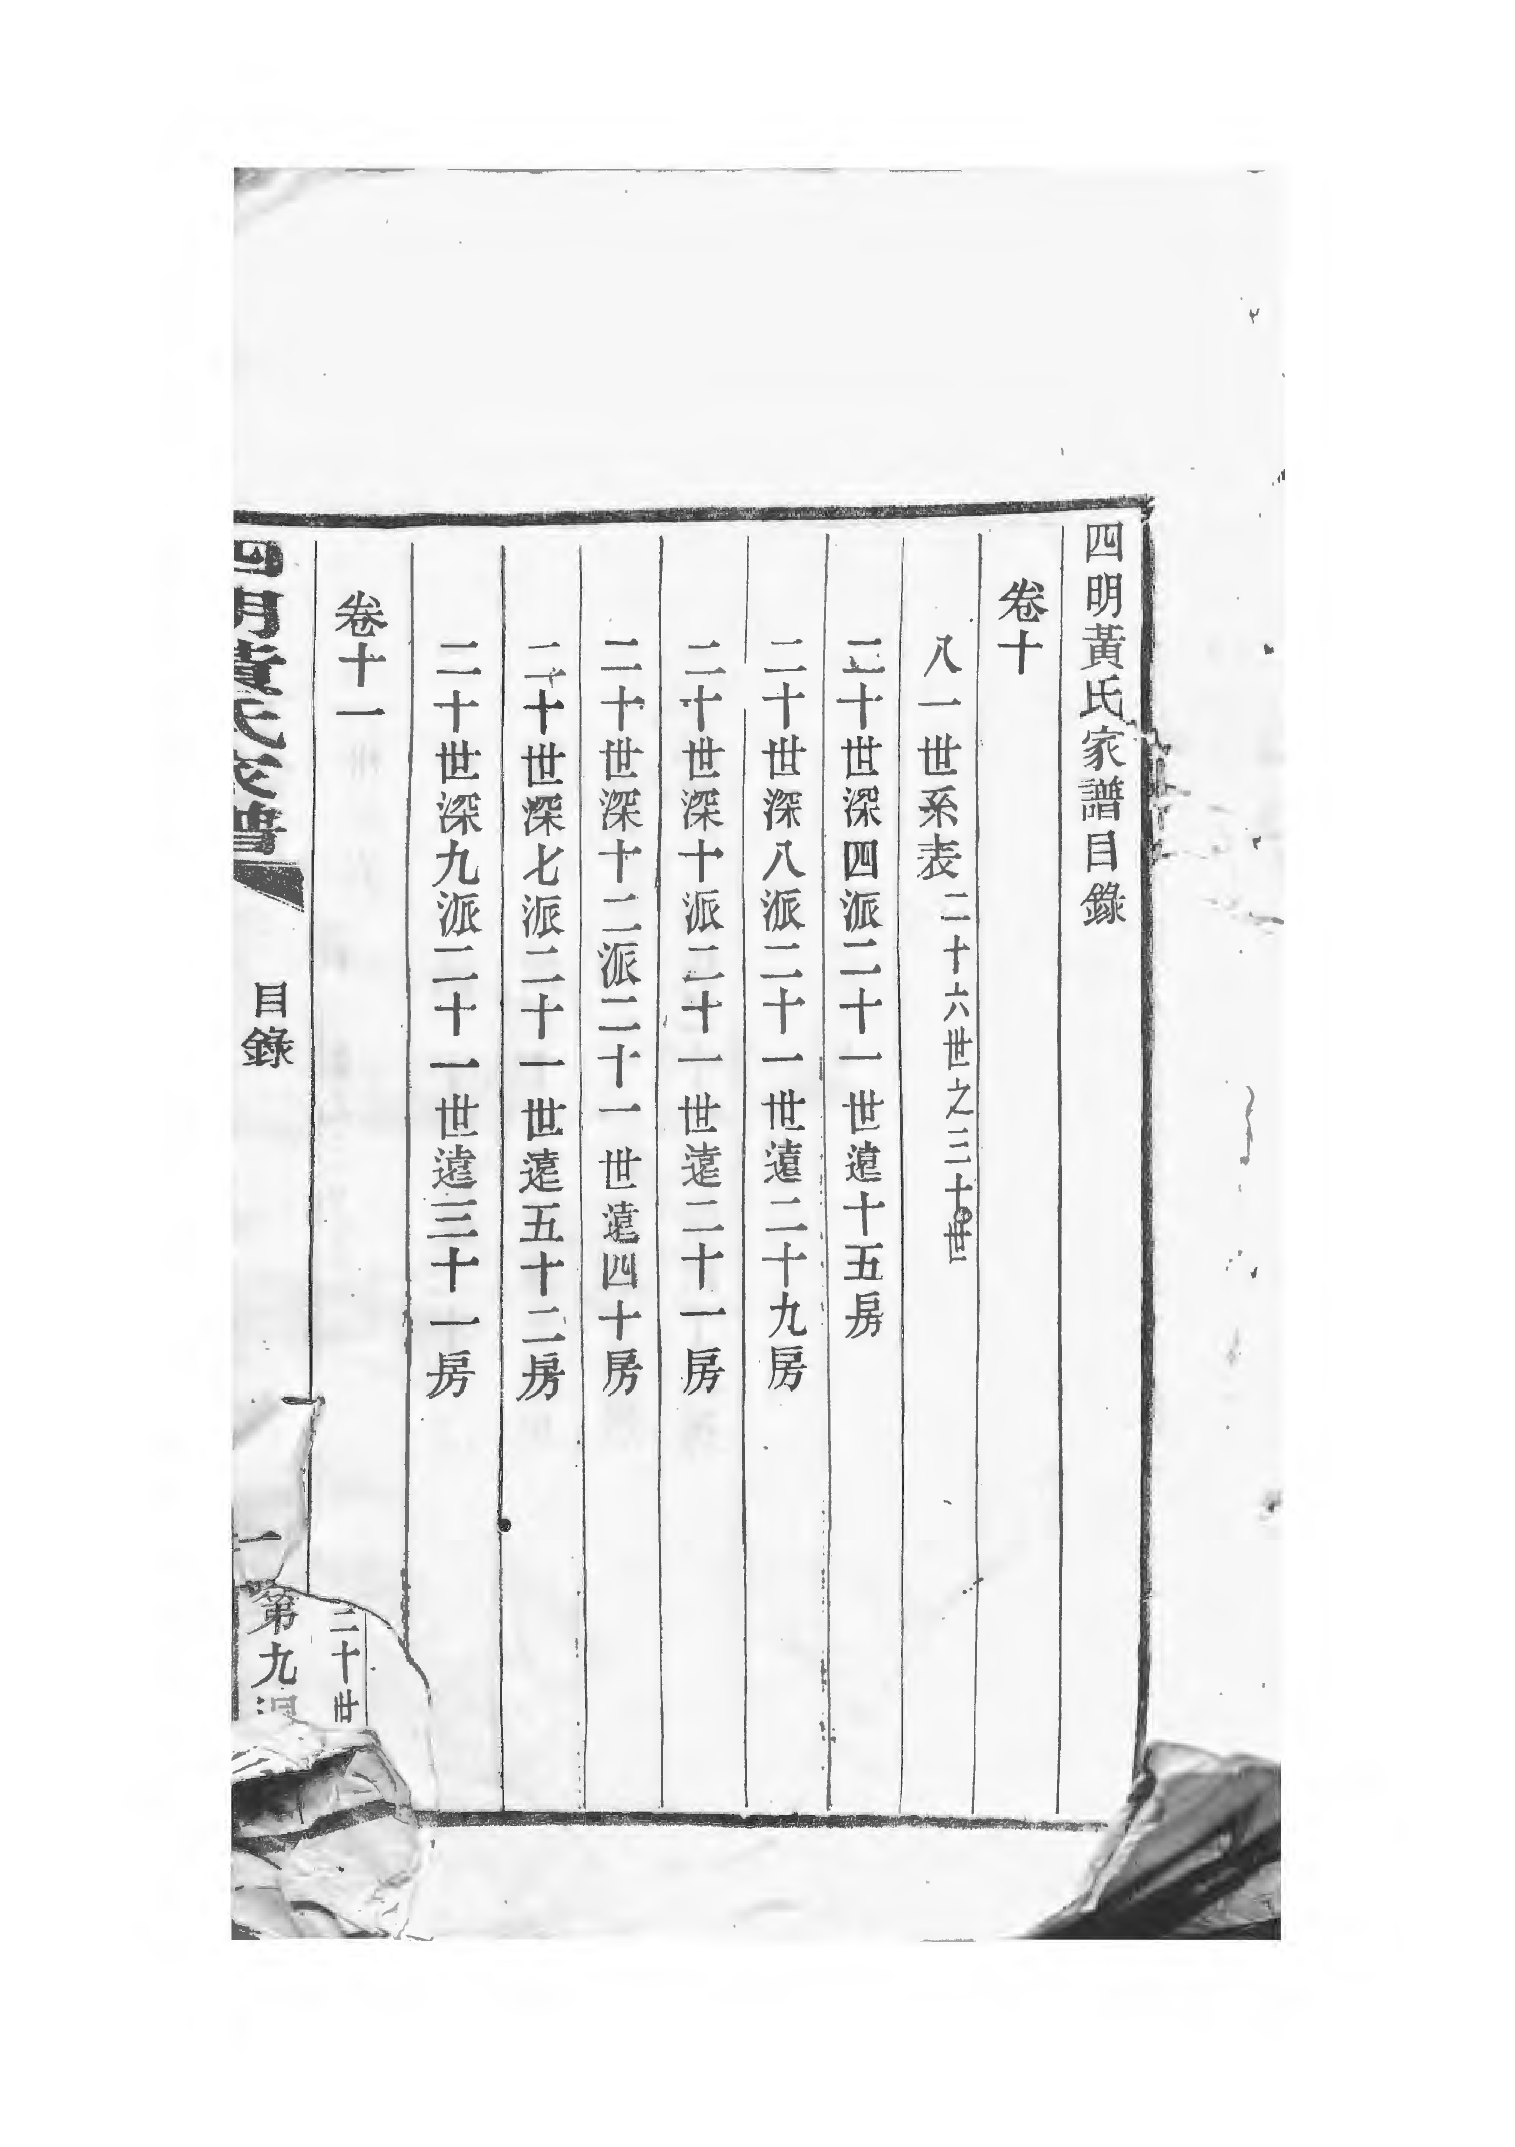 四明黃氏家譜目錄
卷十
八一世系表二十六世之三十世
二十世深四派二十一世遠十五房
二十世深八派二十一世遠二十九房
二十世深十派二十一世遠二十一房
二十世深十二派二十一世遠四十房
二十世深七派二十一世遠五十二房
二十世深九派二十一世遠三十一房
卷十一
四明黃氏家譜
目錄
一
二十世
第九